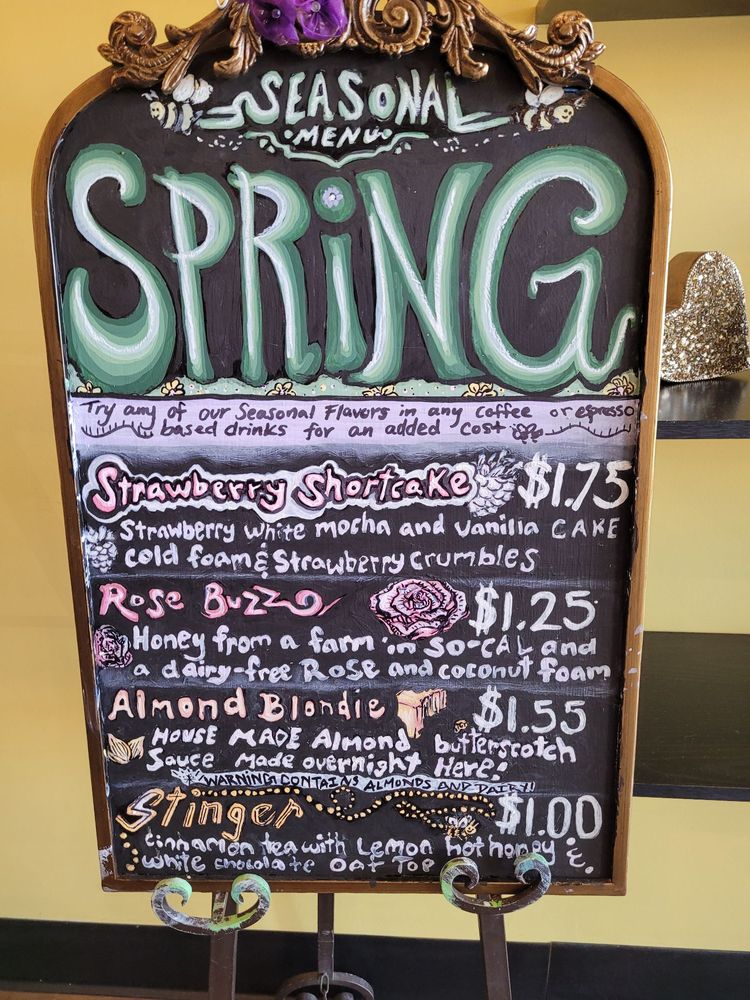 SEASONAL
MENU
SPRiNG
Try any of our Seasonal Flavors in any coffee or espresso
based drinks for an added cost
Strawberry Shortcake $1.75
Strawberry white mocha and vanilla CAKE
cold foam & Strawberry crumbles
Rose Buzz $1.25
Honey from a farm in SO-CAL and
a dairy-free Rose and coconut foam
Almond Blondie $1.55
HOUSE MADE Almond butterscotch
Sauce made overnight Here!
WARNING CONTAINS ALMONDS AND DAIRY!
Stinger $1.00
cinnamon tea with Lemon hot honey &
white chocolate OAT TOP